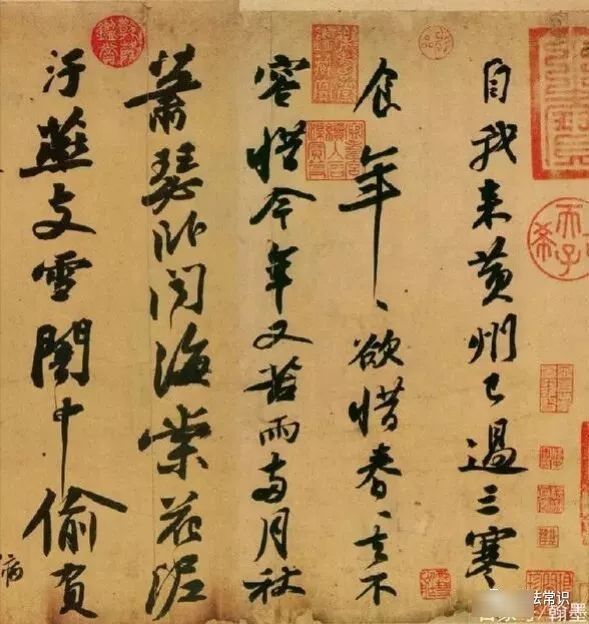 自我来黄州已過三寒
食年、欲惜春、去不
容惜今年又苦雨两月秋
蕭瑟卧聞海棠花泥
汙燕支雪闇中偷負
病
法常识
翰墨